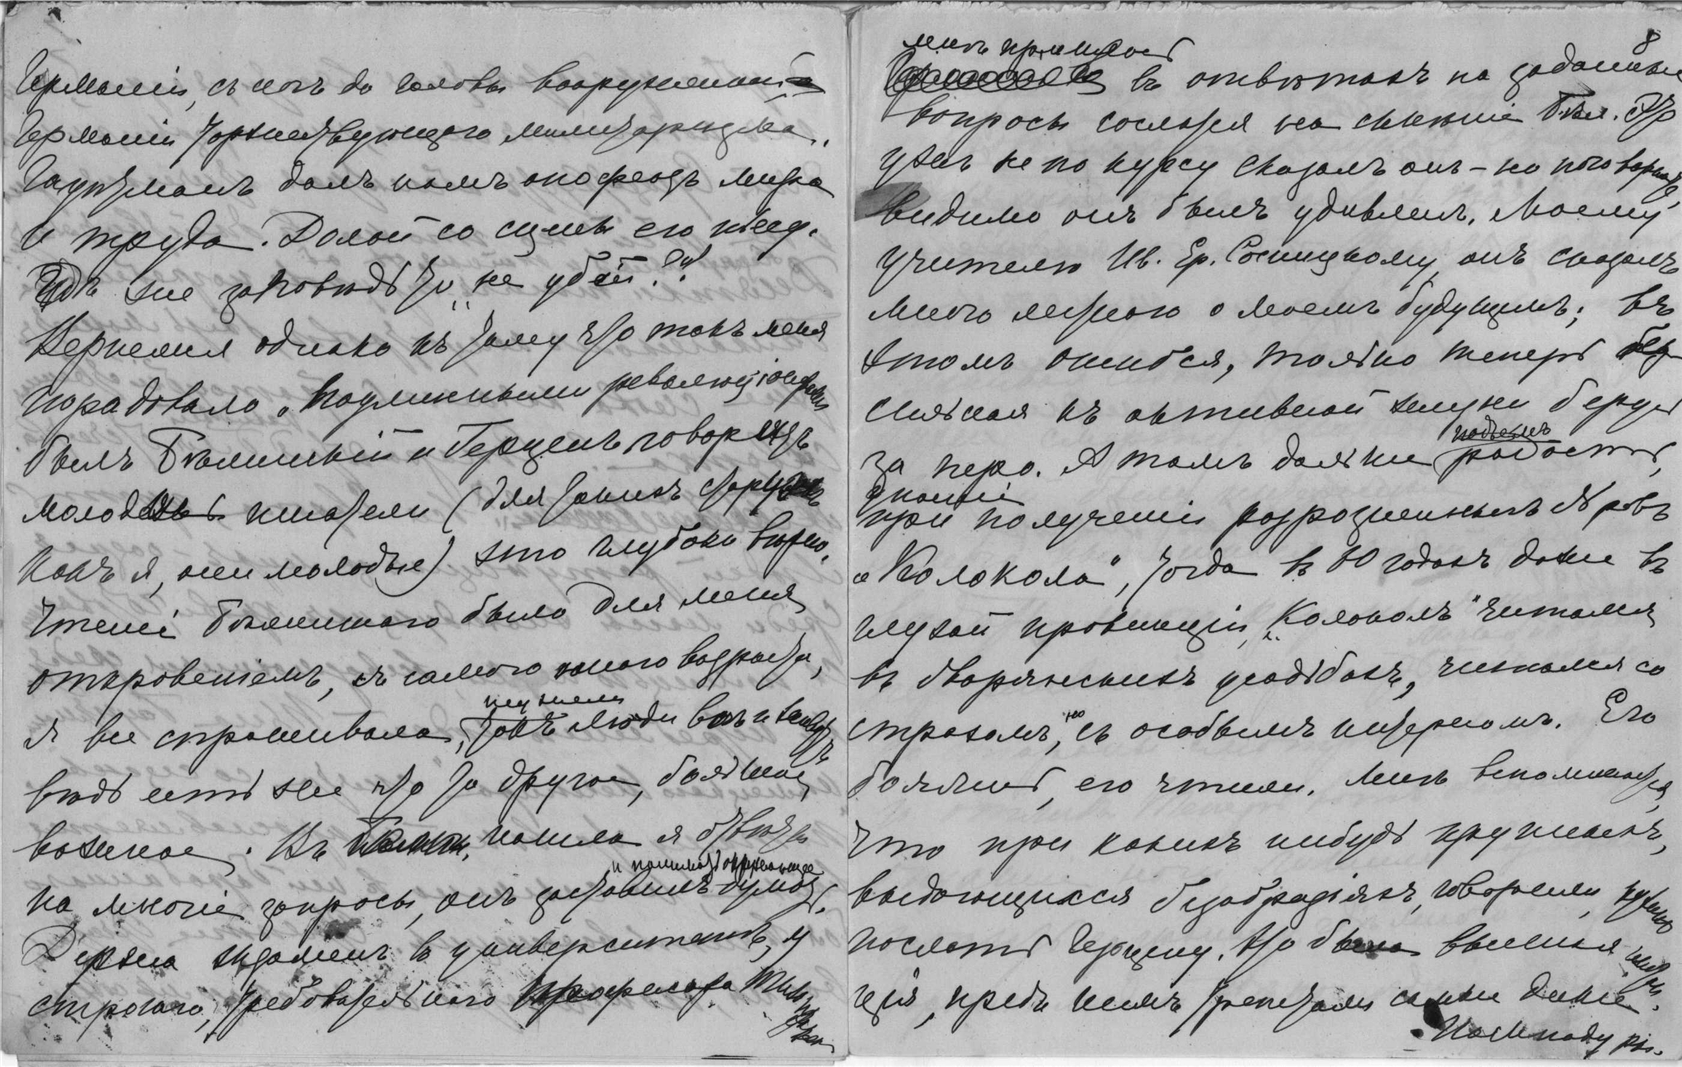 Германіи, съ ногъ до головы вооруженной
Германіи торжествующаго милитаризма.
Гауптманъ далъ намъ апофеозъ мира
и труда. Долой со сцены его пьесу.
Гдѣ же заповѣдь то „не убей"?!
Вернемся однако къ тому что такъ меня
порадовало „Подлинными революціонерами
былъ Бѣлинскій и Герценъ говорятъ
молодые писатели (для такихъ старухъ
какъ я, они молодые) это глубоко вѣрно.
Чтеніе Бѣлинскаго было для меня
откровеніемъ, съ самаго юнаго возраста,
я все спрашивала, неужели такъ люди вотъ и живутъ
вѣдь есть же что то другое, большое,
важное. Въ нашла я отвѣтъ
на многіе запросы, онъ заставилъ думать и понимать окружающее.
Держа экзаменъ въ университетѣ, у
строгаго, требовательнаго профессора
8
мнѣ пришлось
въ отвѣтахъ на заданные
вопросы сослаться на мнѣніе Бѣл. Это
ужъ не по курсу сказалъ онъ – но поговорить,
видимо онъ былъ удивленъ. Моему
учителю Ив. Ер. Сосницкому, онъ сказалъ
много лестного о моемъ будущемъ; въ
этомъ ошибся, только теперь
къ активной жизни берусь
за перо. А тамъ дальше подъемъ радости,
при полученіи розрозненныхъ №ровъ
„Колокола", тогда въ 60 годахъ даже въ
глухой провинціи, „Колоколъ" читался
въ дворянскихъ усадьбахъ, читался со
страхомъ, но съ особымъ интересомъ. Его
боялись, его чтили. Мнѣ вспоминается,
что при какихъ нибудь крупныхъ,
выдающихся безобразіяхъ, говорили, нужно
послать Герцену. Это была высшая
ція, предъ нимъ трепетали самые даже